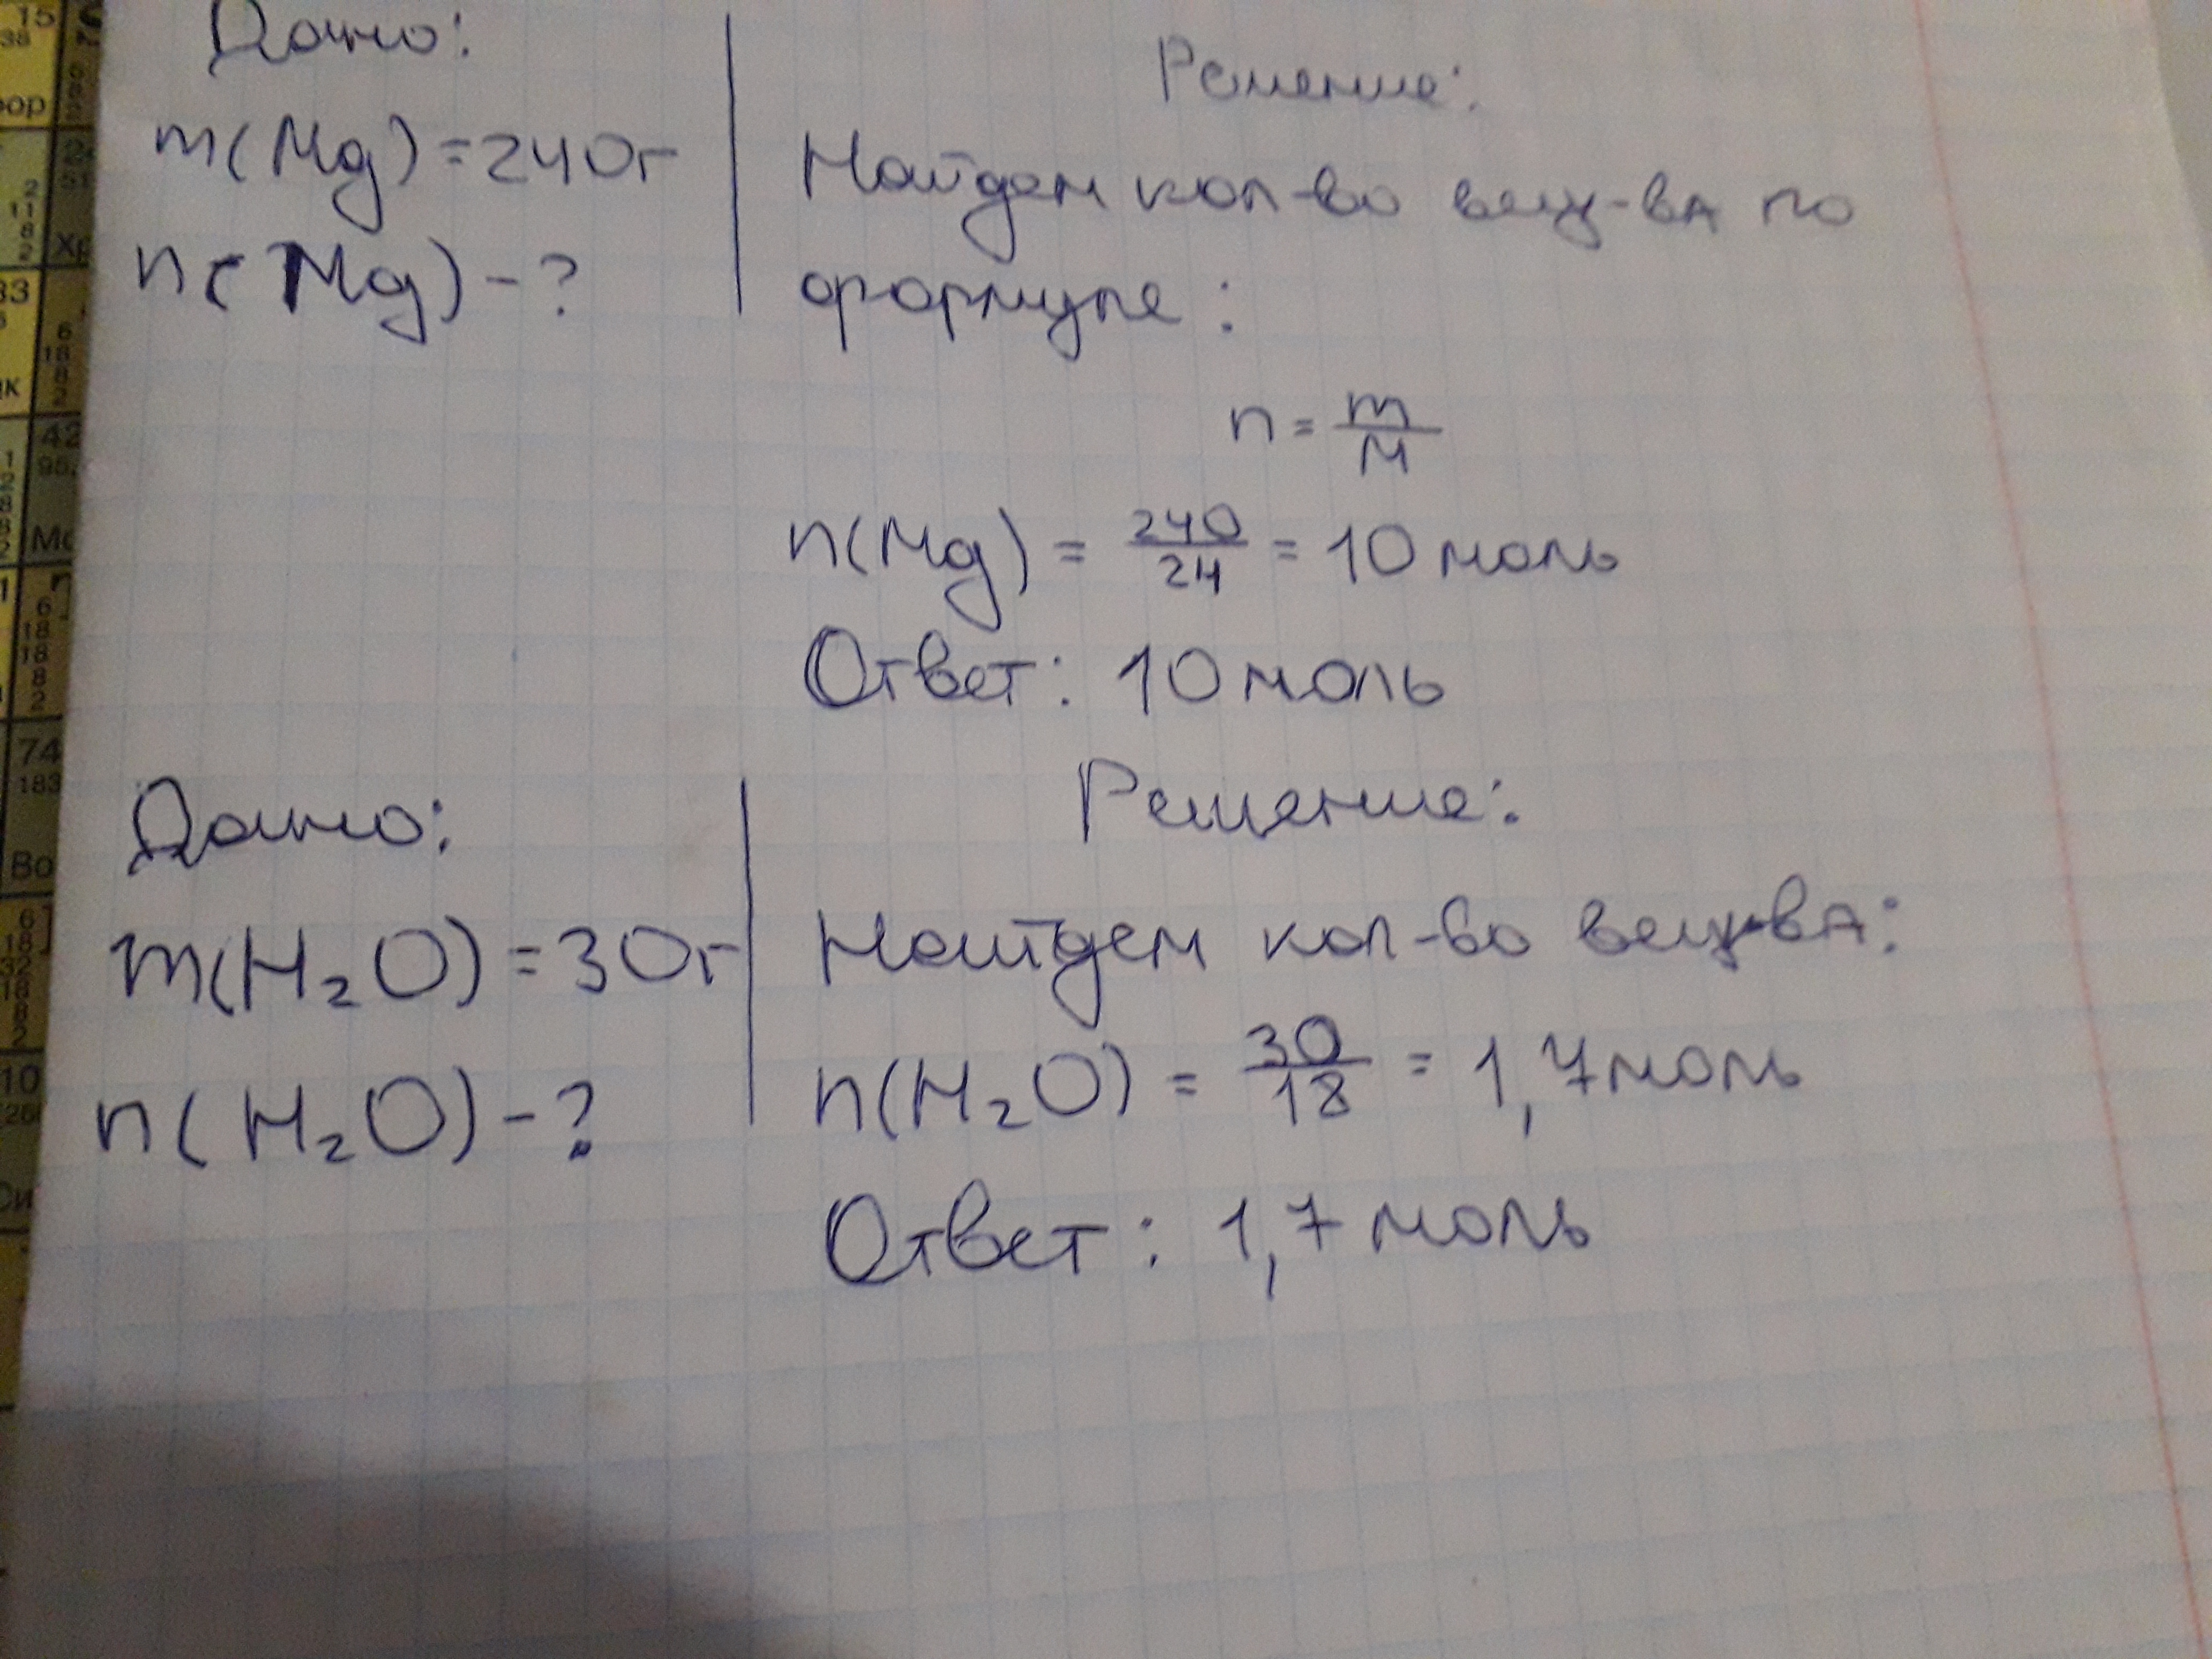 Дано:
m(Mg)=240г
n(Mg)-?
Решение:
Найдем кол-во вещ-ва по
формуле:
n = m/M
n(Mg) = 240/24 = 10 моль
Ответ: 10 моль
Дано:
m(H₂O)=30г
n(H₂O)-?
Решение:
Найдем кол-во вещ-ва:
n(H₂O) = 30/18 = 1,7 моль
Ответ: 1,7 моль
15
ор
33
42
Мо
74
183
Во